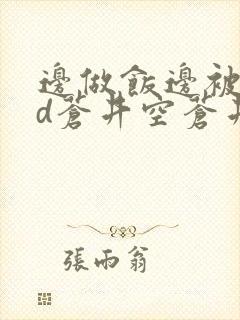 邊做飯邊被
d蒼井空蒼井
張雨翁